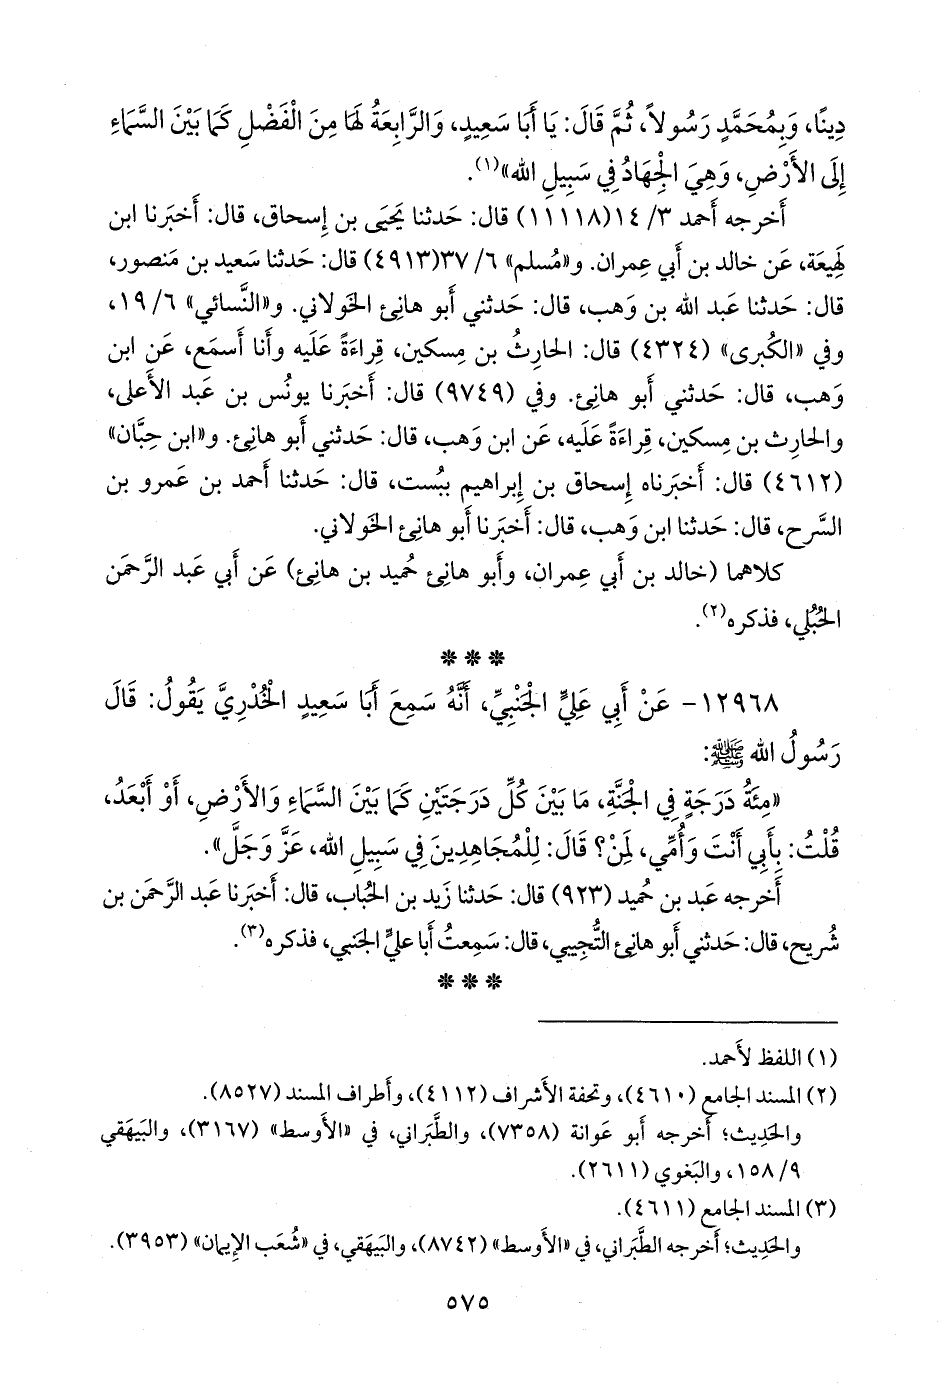 دِينًا، وَبِمُحَمَّدٍ رَسُولاً، ثُمَّ قَالَ: يَا أَبَا سَعِيدٍ، وَالرَّابِعَةُ لَهَا مِنَ الْفَضْلِ كَمَا بَيْنَ السَّمَاءِ
إِلَى الأَرْضِ، وَهِيَ الْجِهَادُ فِي سَبِيلِ الله»(١).
أَخرجه أَحمد ٣/ ١٤(١١١١٨) قال: حَدثنا يَحيَى بن إِسحاق، قال: أَخبَرنا ابن
لَهِيعَة، عَن خالد بن أَبي عِمران. و«مُسلم» ٦/ ٣٧(٤٩١٣) قال: حَدثنا سَعيد بن مَنصور،
قال: حَدثنا عَبد الله بن وَهب، قال: حَدثني أَبو هانِئ الخَولاني. و«النَّسائي» ٦/ ١٩،
وفي «الكُبرى» (٤٣٢٤) قال: الحارِثُ بن مِسكين، قِراءَةً عَلَيه وأَنا أَسمَع، عَن ابن
وَهب، قال: حَدثني أَبو هانِئ. وفي (٩٧٤٩) قال: أَخبَرنا يونُس بن عَبد الأَعلى،
والحارِث بن مِسكين، قِراءَةً عَلَيه، عَن ابن وَهب، قال: حَدثني أَبو هانِئ. و«ابن حِبَّان»
(٤٦١٢) قال: أَخبَرناه إِسحاق بن إِبراهيم ببُست، قال: حَدثنا أَحمد بن عَمرو بن
السَّرح، قال: حَدثنا ابن وَهب، قال: أَخبَرنا أَبو هانِئ الخَولاني.
كلاهما (خالد بن أَبي عِمران، وأَبو هانِئ حُميد بن هانِئ) عَن أَبي عَبد الرَّحمَن
الحُبُلي، فذكره(٢).
* * *
١٢٩٦٨- عَنْ أَبِي عَلِيٍّ الْجَنْبِيِّ، أَنَّهُ سَمِعَ أَبَا سَعِيدٍ الْخُدْرِيَّ يَقُولُ: قَالَ
رَسُولُ الله ﷺ:
«مِئَةُ دَرَجَةٍ فِي الْجَنَّةِ، مَا بَيْنَ كُلِّ دَرَجَتَيْنِ كَمَا بَيْنَ السَّمَاءِ وَالأَرْضِ، أَوْ أَبْعَدُ،
قُلْتُ: بِأَبِي أَنْتَ وَأُمِّي، لِمَنْ؟ قَالَ: لِلْمُجَاهِدِينَ فِي سَبِيلِ الله، عَزَّ وَجَلَّ».
أَخرجه عَبد بن حُميد (٩٢٣) قال: حَدثنا زَيد بن الحُباب، قال: أَخبَرنا عَبد الرَّحمَن بن
شُريح، قال: حَدثني أَبو هانِئ التُّجِيبي، قال: سَمِعتُ أَبا عليٍّ الجَنبي، فذكره(٣).
* * *
(١) اللفظ لأَحمد.
(٢) المسند الجامع (٤٦١٠)، وتحفة الأَشراف (٤١١٢)، وأَطراف المسند (٨٥٢٧).
والحَدِيث؛ أَخرجه أَبو عَوانة (٧٣٥٨)، والطَّبَراني، في «الأَوسط» (٣١٦٧)، والبَيهَقي
٩/ ١٥٨، والبَغوي (٢٦١١).
(٣) المسند الجامع (٤٦١١).
والحَدِيث؛ أَخرجه الطَّبَراني، في «الأَوسط» (٨٧٤٢)، والبَيهَقي، في «شُعَب الإِيمان» (٣٩٥٣).
٥٧٥